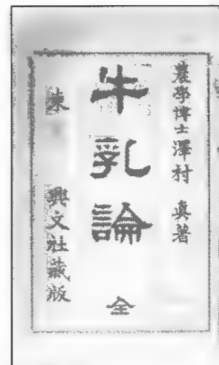 農學博士澤村 真著
牛乳論 全
東 興文社藏版